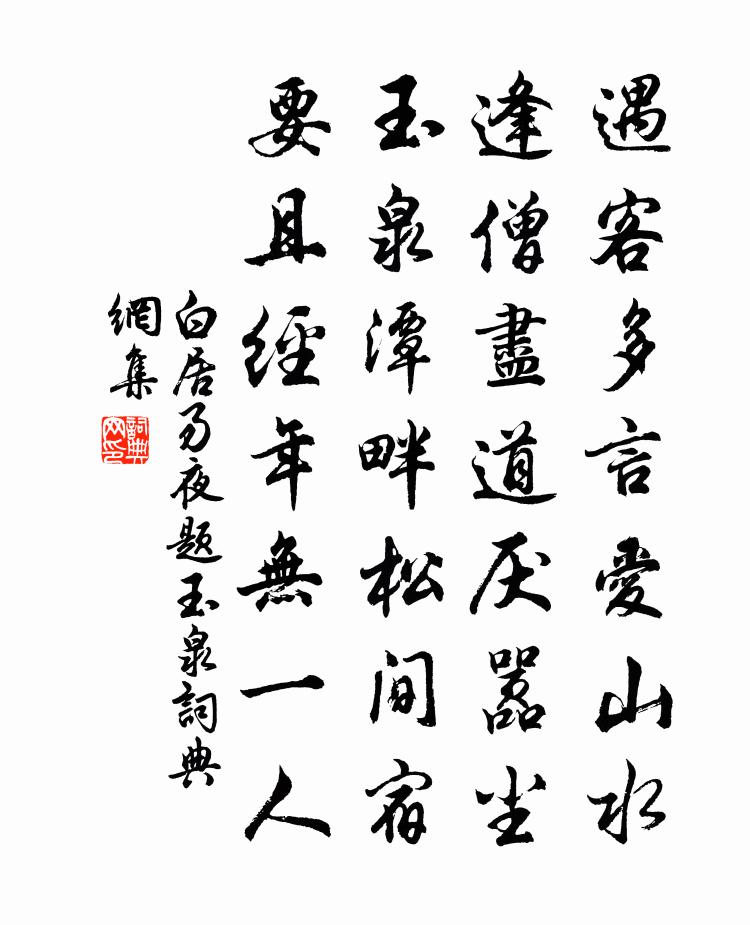 遇客多言愛山水
逢僧盡道厌嚣尘
玉泉潭畔松間宿
要且經年無一人
白居易夜题玉泉詞典
網集
詞典
网印